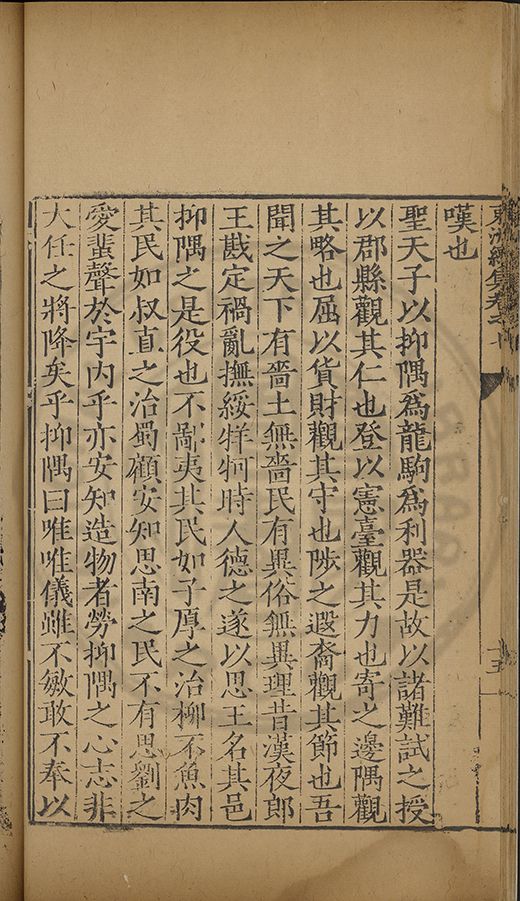 嘆也
聖天子以抑隅爲龍駒爲利器是故以諸難試之授
以郡縣觀其仁也登以憲臺觀其力也寄之邊隅觀
其略也屈以貨財觀其守也陟之遐裔觀其節也吾
聞之天下有嗇土無嗇民有異俗無異理昔漢夜郎
王戡定禍亂撫綏牂牁時人德之遂以思王名其邑
抑隅之是役也不鄙夷其民如子厚之治柳不魚肉
其民如叔直之治蜀顧安知思南之民不有思劉之
愛蜚聲於宇內乎亦安知造物者勞抑隅之心志非
大任之將降矣乎抑隅曰唯唯儀雖不敏敢不奉以